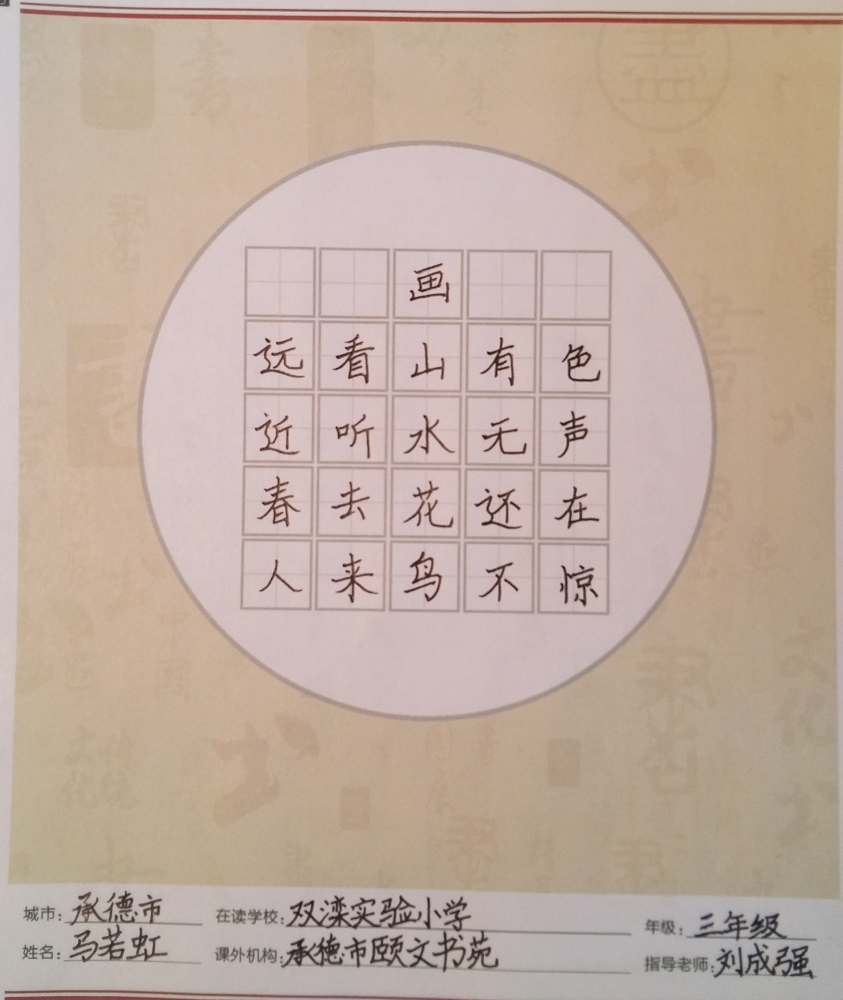 画
远看山有色
近听水无声
春去花还在
人来鸟不惊
城市：承德市 在读学校：双滦实验小学 年级：三年级
姓名：马若虹 课外机构：承德市颐文书苑 指导老师：刘成强